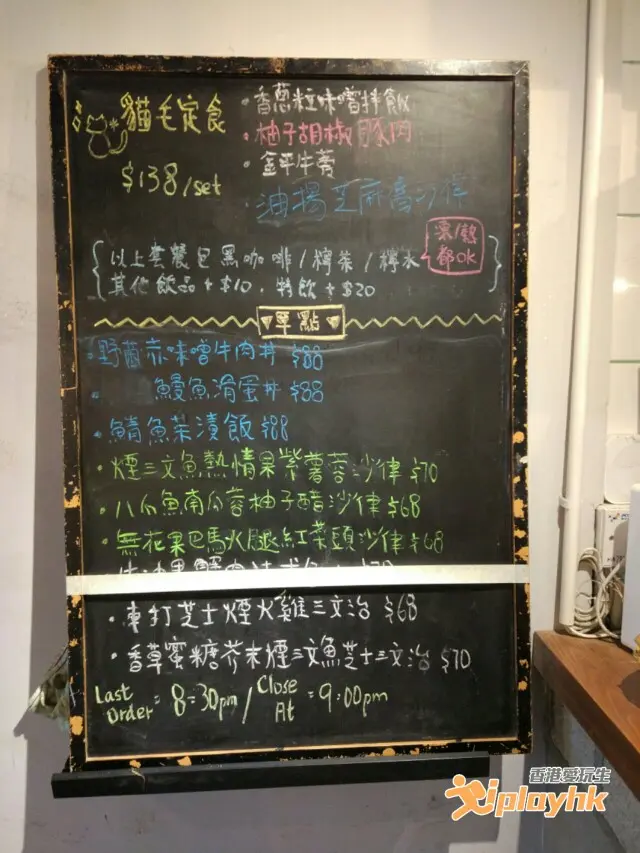 貓毛定食
$138/set
·香蔥粒味噌拌飯
·柚子胡椒豚肉
·金平牛蒡
·油揚芝麻醬沙律
以上套餐包黑咖啡/檸茶/檸水
凍/熱都OK
其他飲品+$10，特飲+$20
單點
·野菌赤味噌牛肉丼 $88
·鰻魚滑蛋丼 $88
·鯖魚茶漬飯 $88
·煙三文魚熱情果紫薯蓉沙律 $70
·八爪魚南瓜蓉柚子醋沙律 $68
·無花果巴馬火腿紅菜頭沙律 $68
·車打芝士煙火雞三文治 $68
·香草蜜糖芥末煙三文魚芝士三文治 $70
Last Order = 8:30pm / Close At = 9:00pm
香港愛玩生
iplayhk